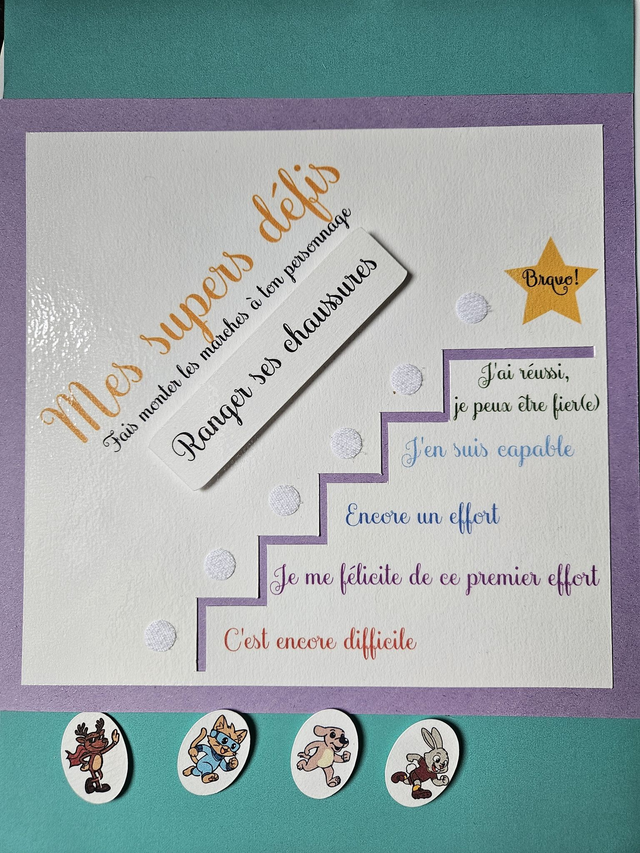 Mes supers défis
Fais monter les marches à ton personnage
Ranger ses chaussures
Bravo!
J'ai réussi,
je peux être fier(e)
J'en suis capable
Encore un effort
Je me félicite de ce premier effort
C'est encore difficile